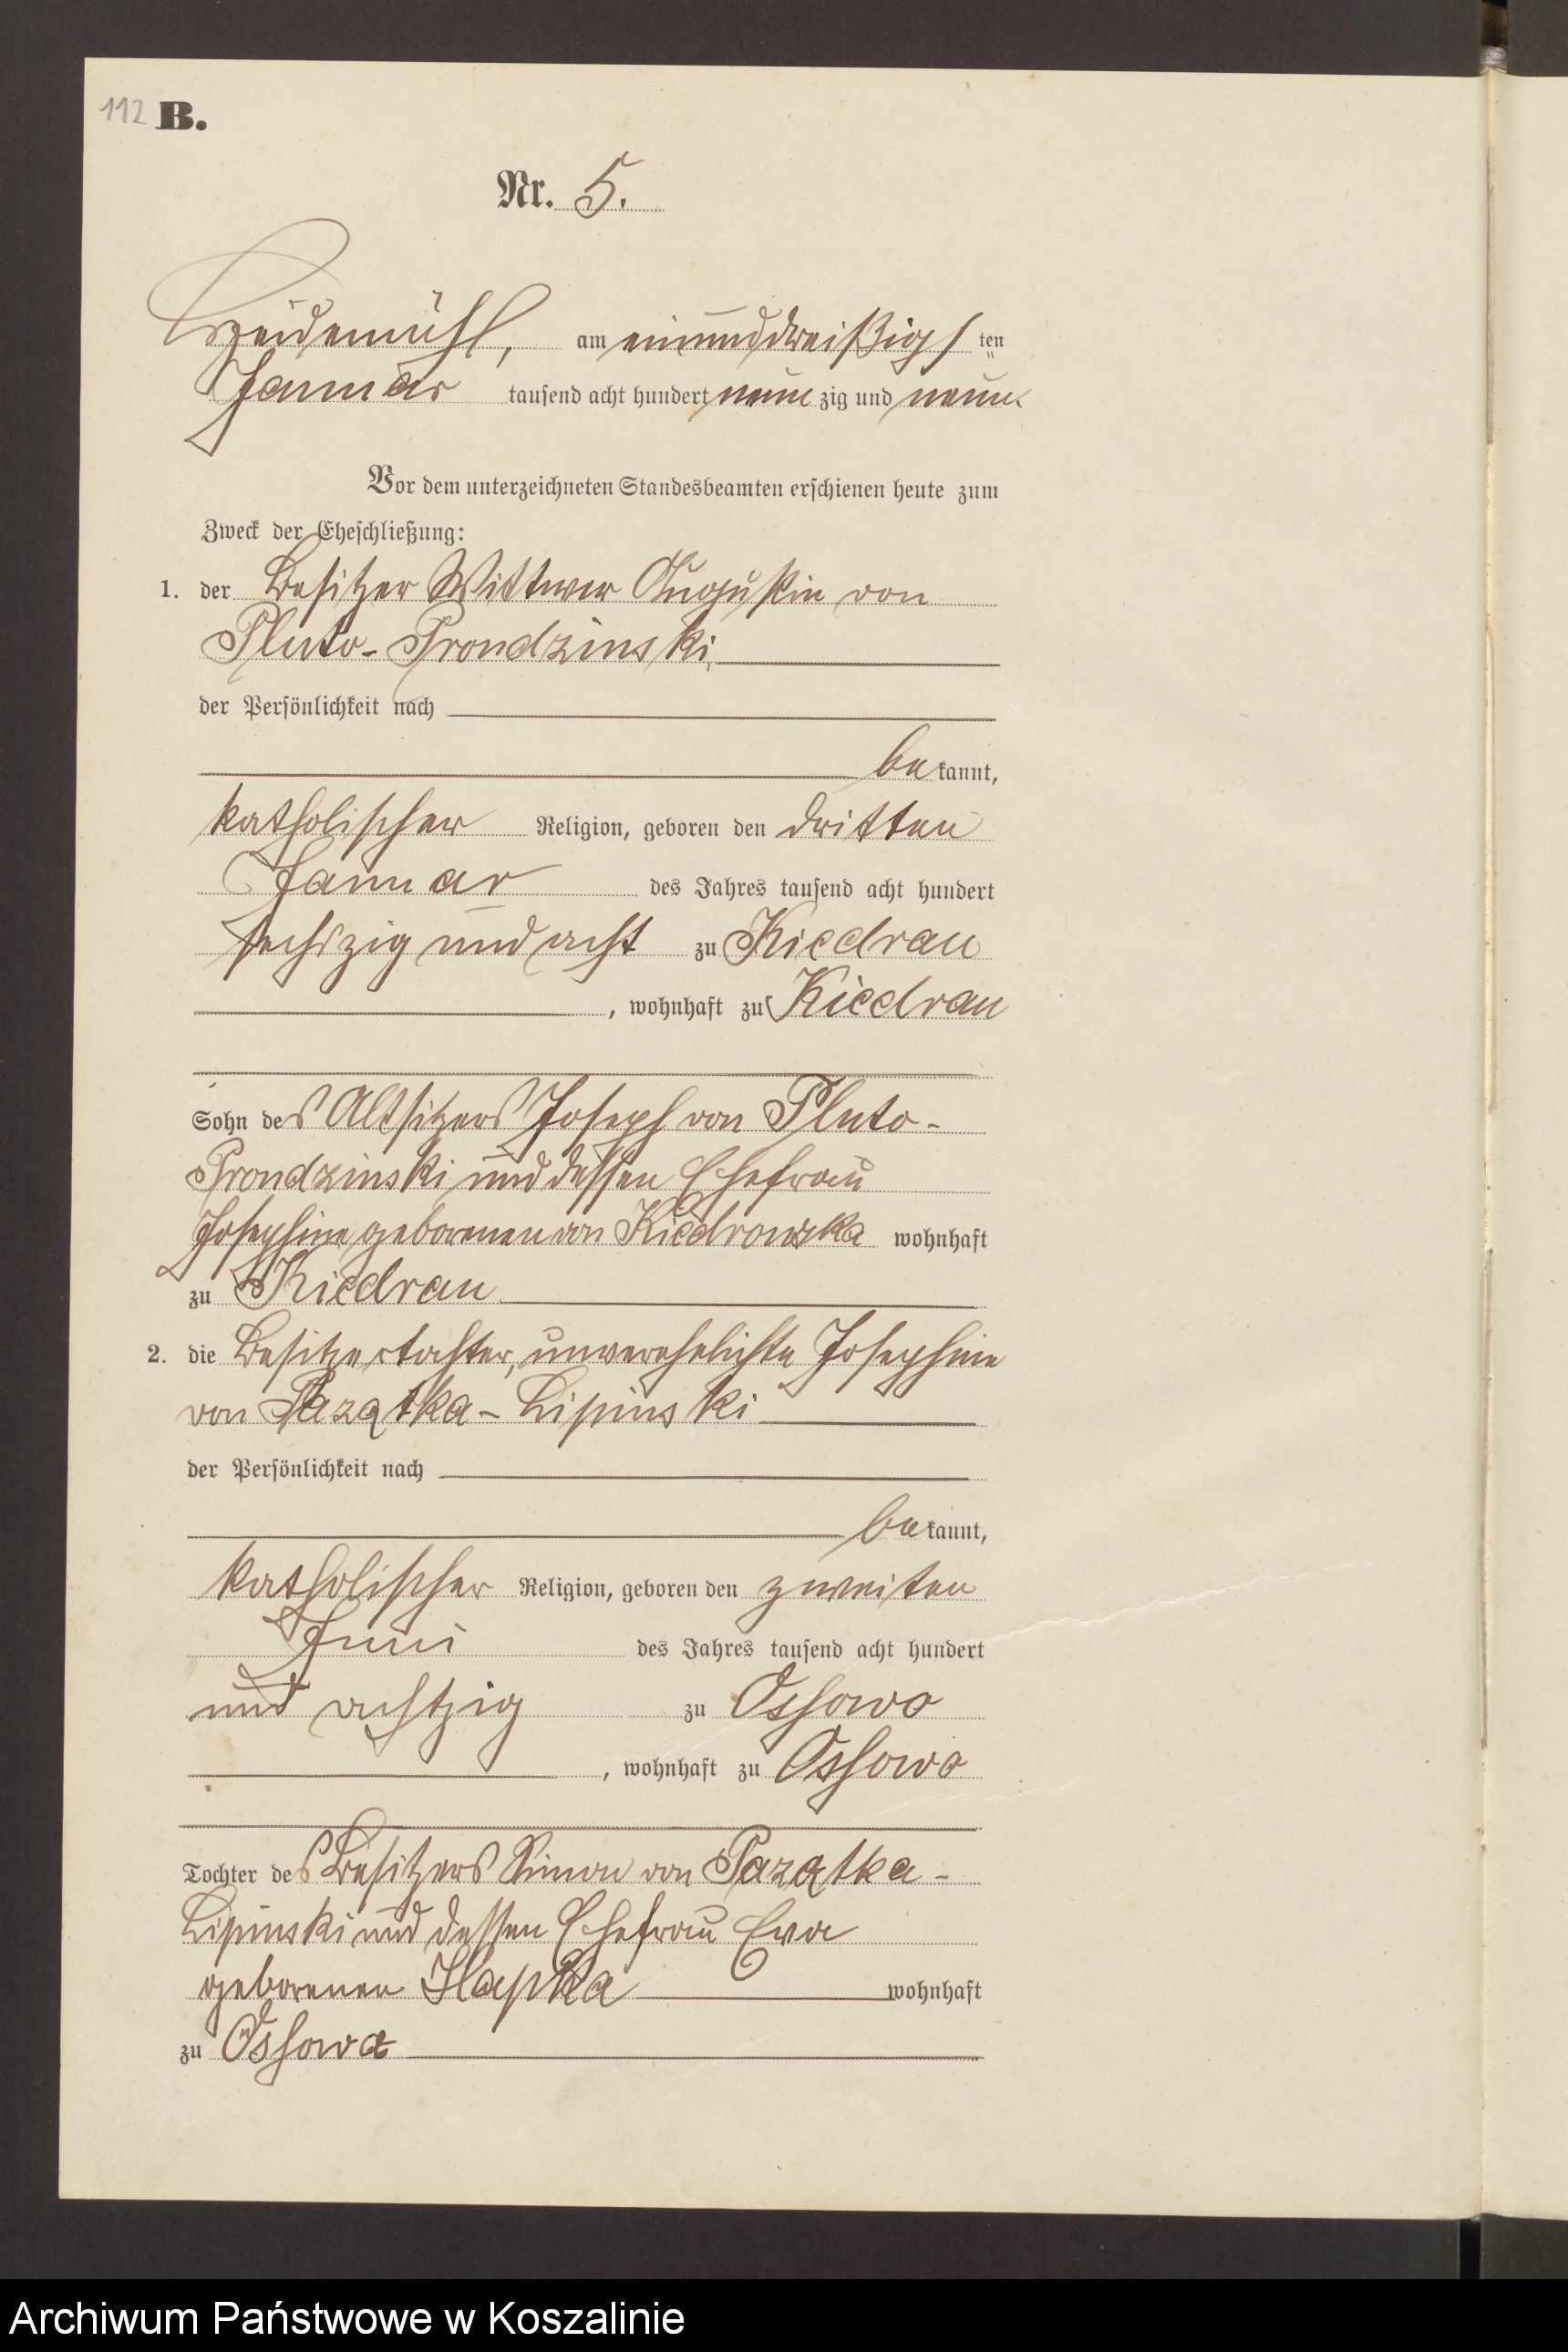 112 B.
Nr. 5.
Heidemühl, am einunddreißigsten
Januar tausend acht hundert neunzig und neun.
Vor dem unterzeichneten Standesbeamten erschienen heute zum
Zweck der Eheschließung:
1. der Besitzer Wittwer Augustin von
Pluto-Prondzinski,
der Persönlichkeit nach
bekannt,
katholischer Religion, geboren den dritten
Januar des Jahres tausend acht hundert
sechszig und acht zu Kiedrau
, wohnhaft zu Kiedrau
Sohn des Altsitzers Joseph von Pluto-
Prondzinski und dessen Ehefrau
Josephine geborenen von Kiedrowska wohnhaft
zu Kiedrau
2. die Besitzertochter, unverehelichte Josephine
von Pazątka-Lipinski
der Persönlichkeit nach
bekannt,
katholischer Religion, geboren den zweiten
Juni des Jahres tausend acht hundert
und achtzig zu Ossowo
, wohnhaft zu Ossowo
Tochter des Besitzers Simon von Pazątka-
Lipinski und dessen Ehefrau Eva
geborenen Hapka wohnhaft
zu Ossowo
Archiwum Państwowe w Koszalinie